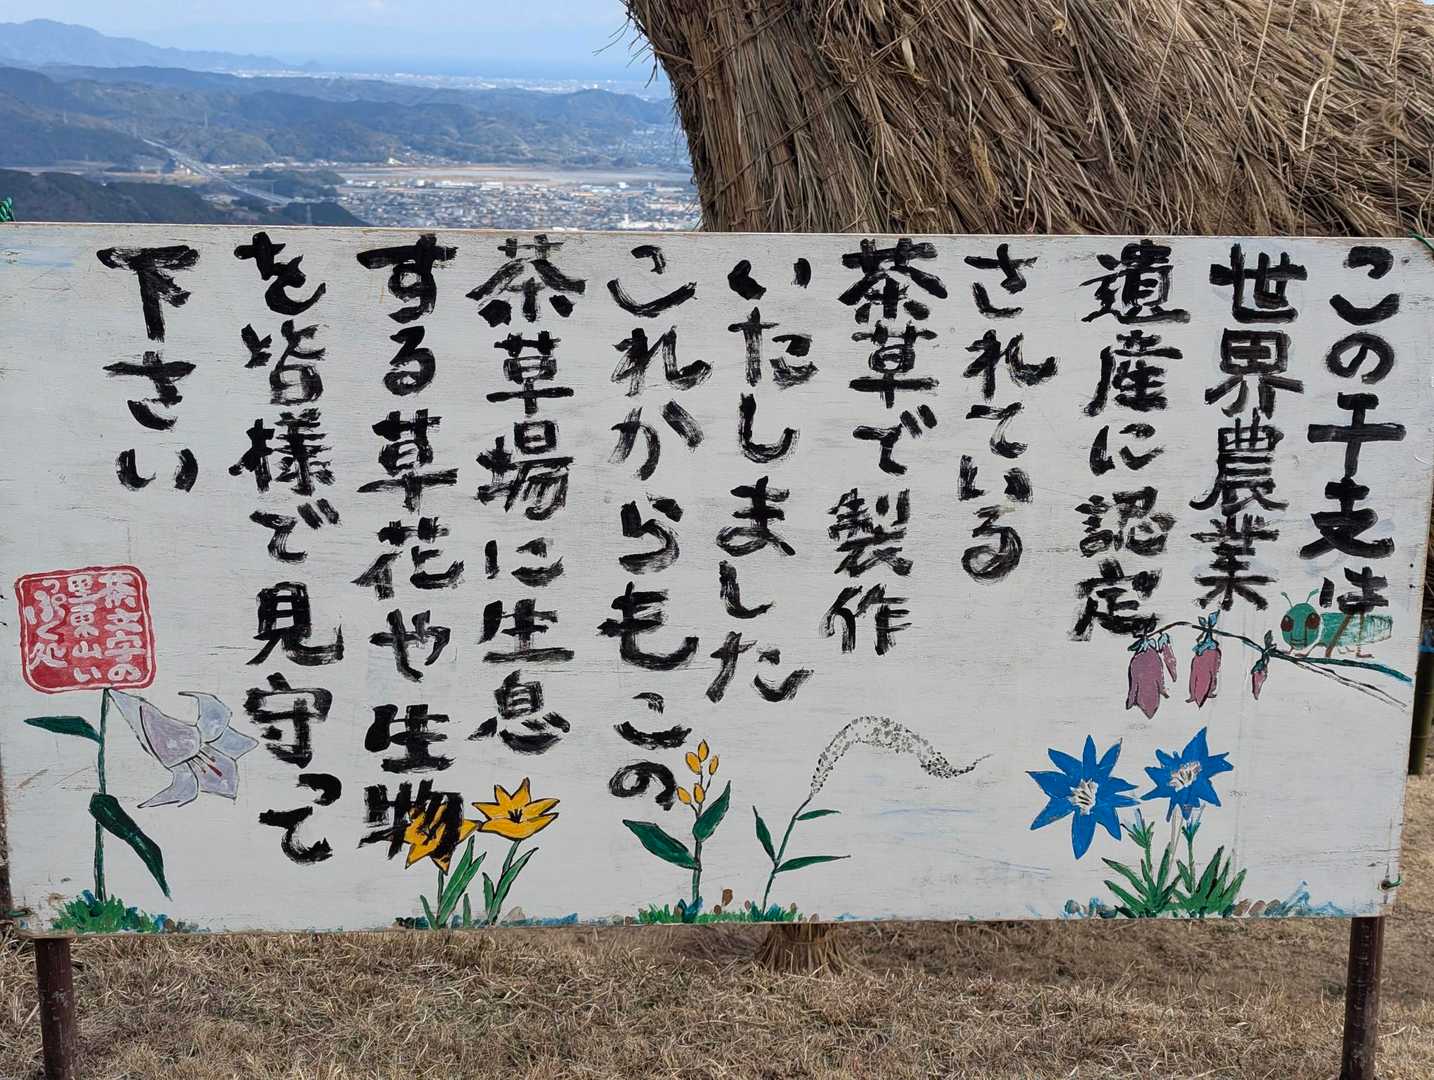 この干支は
世界農業
遺産に認定
されている
茶草で製作
いたしました
これからもこの
茶草場に生息
する草花や生物
を皆様で見守って
下さい
茶文字の
里東山い
っぷく処